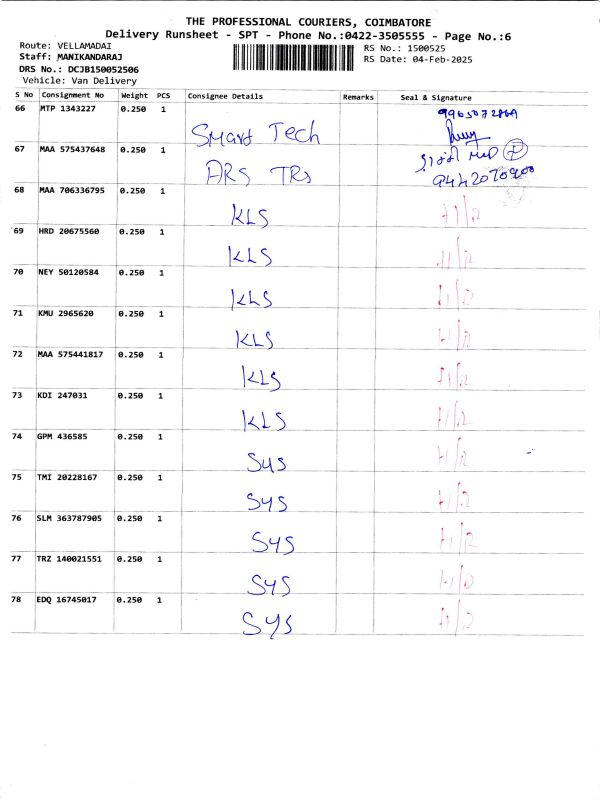 THE PROFESSIONAL COURIERS, COIMBATORE
Delivery Runsheet - SPT - Phone No.:0422-3505555 - Page No.:6
Route: VELLAMADAI
Staff: MANIKANDARAJ
DRS No.: DCJB150052506
Vehicle: Van Delivery
RS No.: 1500525
RS Date: 04-Feb-2025
S No Consignment No Weight PCS Consignee Details Remarks Seal & Signature
66 MTP 1343227 0.250 1 Smart Tech
67 MAA 575437648 0.250 1 ARS TRs
9442070900
68 MAA 706336795 0.250 1 KLS
69 HRD 20675560 0.250 1 KLS
70 NEY 50120584 0.250 1 KLS
71 KMU 2965620 0.250 1 KLS
72 MAA 575441817 0.250 1 KLS
73 KDI 247031 0.250 1 KLS
74 GPM 436585 0.250 1 SYS
75 TMI 20228167 0.250 1 SYS
76 SLM 363787905 0.250 1 SYS
77 TRZ 140021551 0.250 1 SYS
78 EDQ 16745017 0.250 1 SYS